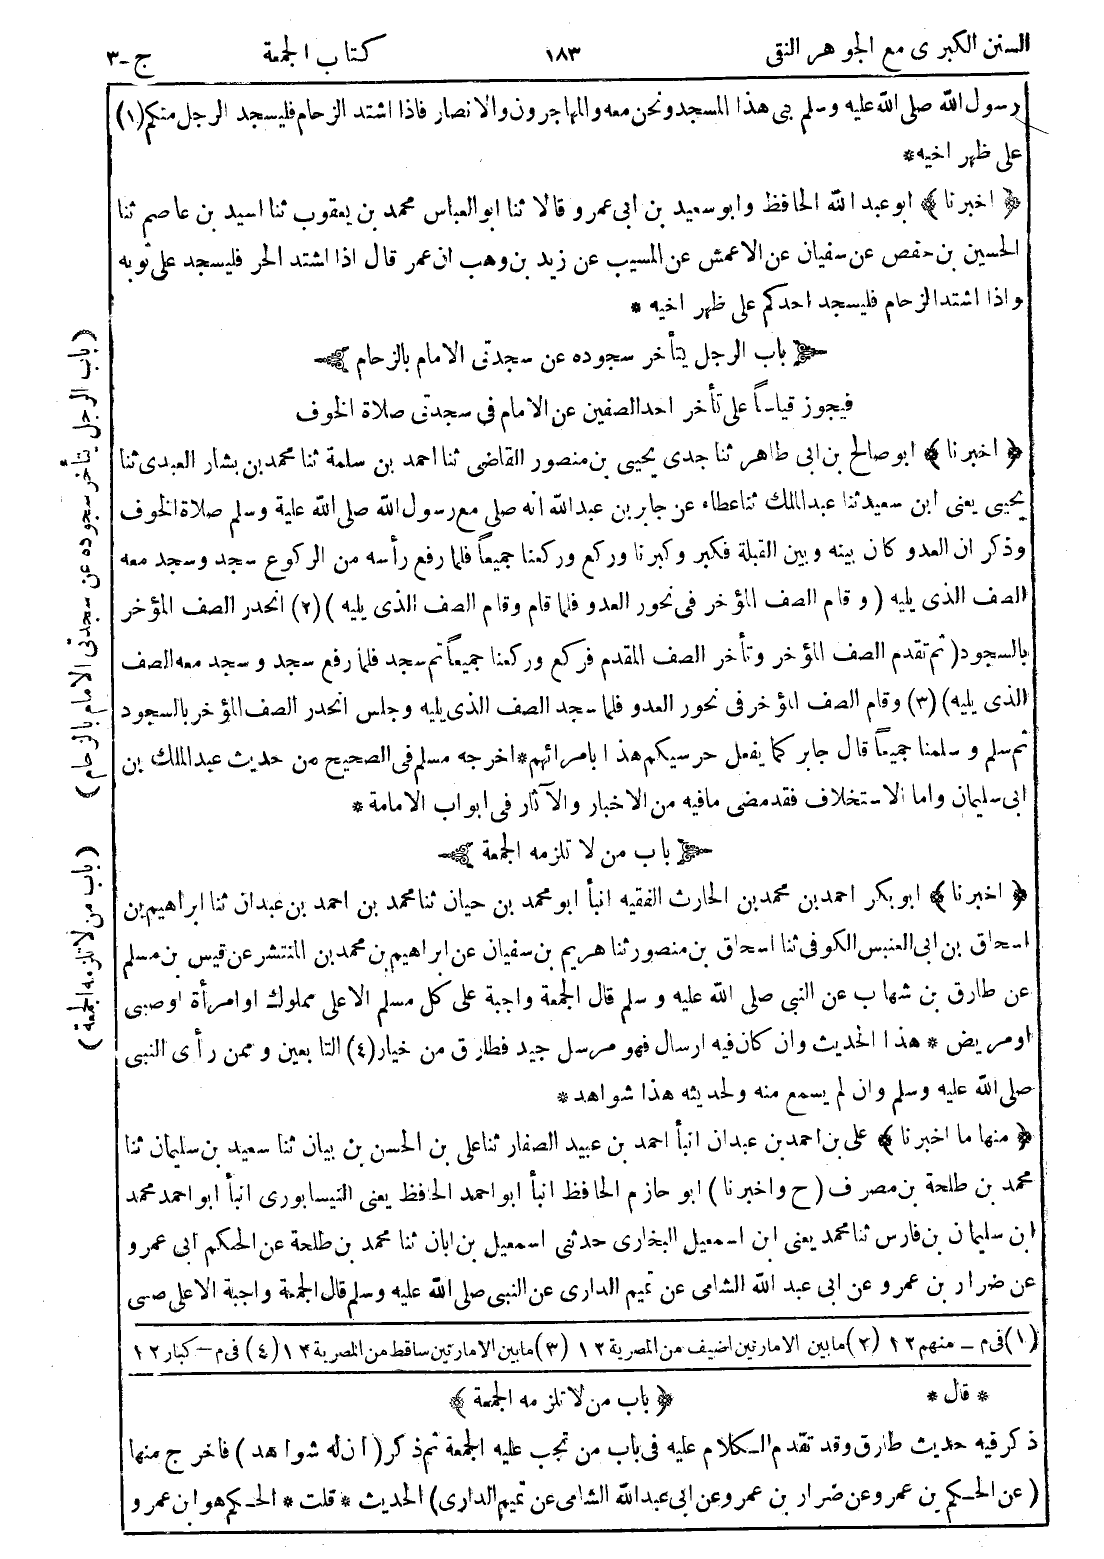 السنن الكبرى مع الجوهر النقى ١٨٣ كتاب الجمعة ج-٣
رسول الله صلى الله عليه وسلم بنى هذا المسجد ونحن معه والمهاجرون والانصار فاذا اشتد الزحام فليسجد الرجل منكم (١)
على ظهر اخيه*
﴿ اخبرنا ﴾ ابو عبد الله الحافظ وابو سعيد بن ابى عمرو قالا ثنا ابو العباس محمد بن يعقوب ثنا اسيد بن عاصم ثنا
الحسين بن حفص عن سفيان عن الاعمش عن المسيب عن زيد بن وهب ان عمر قال اذا اشتد الحر فليسجد على ثوبه
واذا اشتد الزحام فليسجد احدكم على ظهر اخيه *
﴿ باب الرجل يتأخر سجوده عن سجدتى الامام بالزحام ﴾
فيجوز قياساً على تأخر احد الصفين عن الامام فى سجدتى صلاة الخوف
﴿ اخبرنا ﴾ ابو صالح بن ابى طاهر ثنا جدى يحيى بن منصور القاضى ثنا احمد بن سلمة ثنا محمد بن بشار العبدى ثنا
يحيى يعنى ابن سعيد ثنا عبد الملك ثنا عطاء عن جابر بن عبد الله انه صلى مع رسول الله صلى الله علية وسلم صلاة الخوف
وذكر ان العدو كان بينه وبين القبلة فكبر وكبرنا وركع وركعنا جميعاً فلما رفع رأسه من الركوع سجد وسجد معه
الصف الذى يليه ( وقام الصف المؤخر فى نحور العدو فلما قام وقام الصف الذى يليه ) (٢) انحدر الصف المؤخر
بالسجود ( ثم تقدم الصف المؤخر وتأخر الصف المقدم فركع وركعنا جميعاً ثم سجد فلما رفع سجد وسجد معه الصف
الذى يليه) (٣) وقام الصف المؤخر فى نحور العدو فلما سجد الصف الذى يليه وجلس انحدر الصف المؤخر بالسجود
ثم سلم وسلمنا جميعاً قال جابر كما يفعل حرسيكم هذا بامرائهم*اخرجه مسلم فى الصحيح من حديث عبد الملك بن
ابى سليمان واما الاستخلاف فقد مضى مافيه من الاخبار والآثار فى ابواب الامامة *
﴿ باب من لا تلزمه الجمعة ﴾
﴿ اخبرنا ﴾ ابو بكر احمد بن محمد بن الحارث الفقيه انبأ ابو محمد بن حيان ثنا محمد بن احمد بن عبدان ثنا ابراهيم بن
اسحاق بن ابى العنبس الكوفى ثنا اسحاق بن منصور ثنا هريم بن سفيان عن ابراهيم بن محمد بن المنتشر عن قيس بن مسلم
عن طارق بن شهاب عن النبى صلى الله عليه وسلم قال الجمعة واجبة على كل مسلم الا على مملوك او امرأة او صبى
او مريض * هذا الحديث وان كان فيه ارسال فهو مرسل جيد فطارق من خيار (٤) التابعين وممن رأى النبى
صلى الله عليه وسلم وان لم يسمع منه ولحديثه هذا شواهد*
﴿ منها ما اخبرنا ﴾ على بن احمد بن عبدان انبأ احمد بن عبيد الصفار ثنا على بن الحسن بن بيان ثنا سعيد بن سليمان ثنا
محمد بن طلحة بن مصرف ( ح واخبرنا ) ابو حازم الحافظ انبأ ابو احمد الحافظ يعنى النيسابورى انبأ ابو احمد محمد
ابن سليمان بن فارس ثنا محمد يعنى ابن اسمعيل البخارى حدثنى اسمعيل بن ابان ثنا محمد بن طلحة عن الحكم ابى عمرو
عن ضرار بن عمرو عن ابى عبد الله الشامى عن تميم الدارى عن النبى صلى الله عليه وسلم قال الجمعة واجبة الا على صبى
(١) فى م - منهم ١٢ (٢) مابين الامارتين اضيف من المصرية ١٢ (٣) مابين الامارتين ساقط من المصرية ١٢ (٤) فى م - كبار ١٢
* قال * ﴿ باب من لا تلزمه الجمعة ﴾
ذكر فيه حديث طارق وقد تقدم الكلام عليه فى باب من تجب عليه الجمعة ثم ذكر ( ان له شواهد ) فاخرج منها
( عن الحكم بن عمرو عن ضرار بن عمرو وعن ابى عبد الله الشامى عن تميم الدارى) الحديث * قلت * الحكم هو ابن عمرو
(باب الرجل يتأخر سجوده عن سجدتى الامام بالزحام)
(باب من لا تلزمه الجمعة)